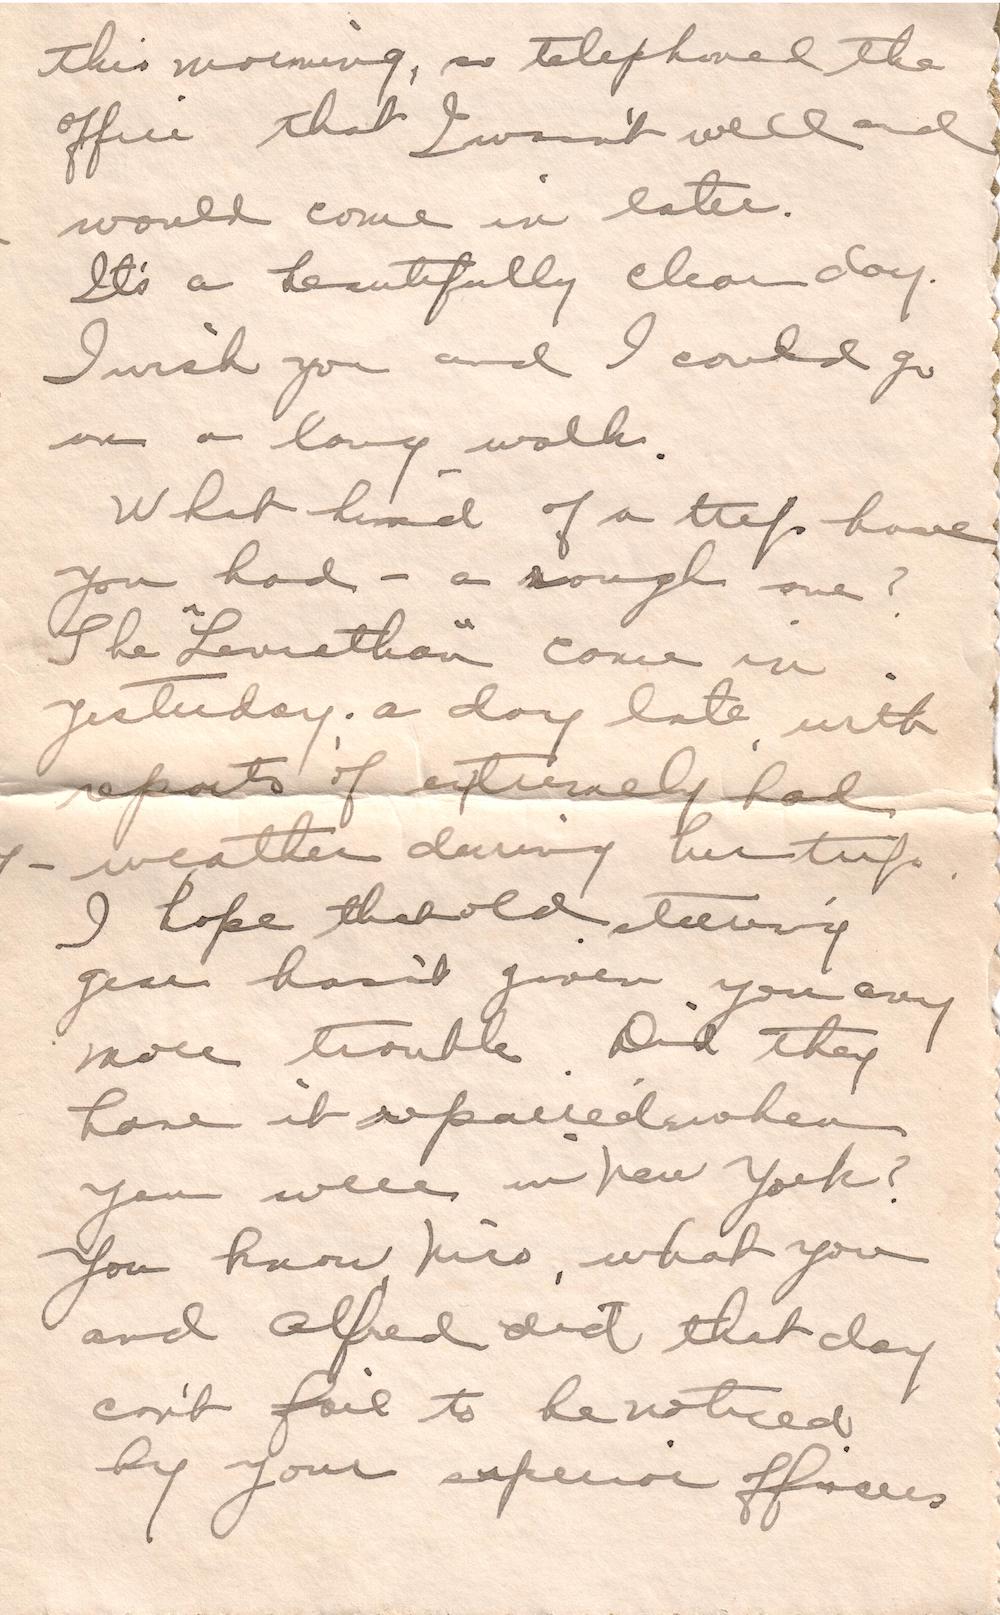 this morning, so telephoned the
office that I wasn't well and
would come in later.
It's a beautifully clear day.
I wish you and I could go
on a long walk.
What kind of a trip have
you had - a rough one?
The "Leviathan" came in
yesterday, a day late, with
reports of extremely bad
weather during her trip.
I hope that old steering
gear hasn't given you any
more trouble. Did they
have it repaired when
you were in New York?
You know, , what you
and Alfred did that day
can't fail to be noticed
by your superior officers